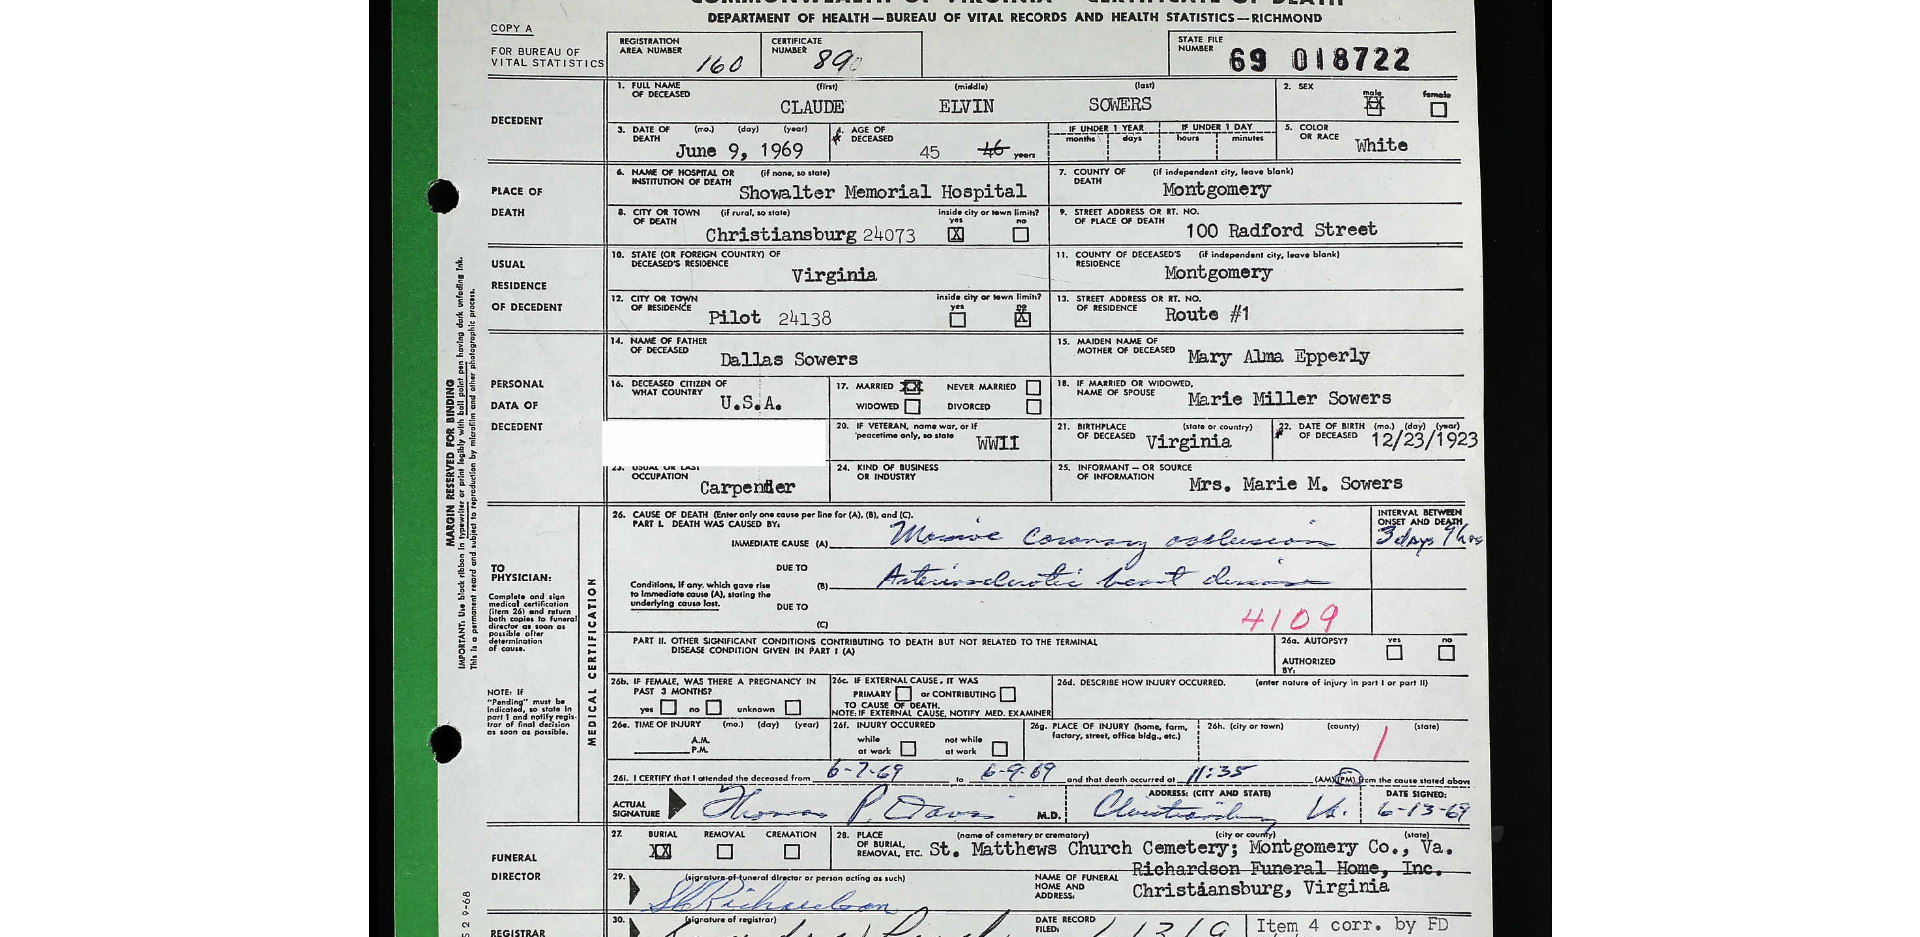 DEPARTMENT OF HEALTH—BUREAU OF VITAL RECORDS AND HEALTH STATISTICS—RICHMOND
COPY A
FOR BUREAU OF VITAL STATISTICS
REGISTRATION AREA NUMBER 160
CERTIFICATE NUMBER 890
STATE FILE NUMBER 69 018722
DECEDENT
1. FULL NAME OF DECEASED (first) (middle) (last)
CLAUDE ELVIN SOWERS
2. SEX male XX female
3. DATE OF DEATH (mo.) (day) (year)
June 9, 1969
4. AGE OF DECEASED 45 46 years
IF UNDER 1 YEAR months days
IF UNDER 1 DAY hours minutes
5. COLOR OR RACE White
PLACE OF DEATH
6. NAME OF HOSPITAL OR INSTITUTION OF DEATH (if none, so state)
Showalter Memorial Hospital
7. COUNTY OF DEATH (if independent city, leave blank)
Montgomery
8. CITY OR TOWN OF DEATH (if rural, so state)
Christiansburg 24073
inside city or town limits? yes X no
9. STREET ADDRESS OR RT. NO. OF PLACE OF DEATH
100 Radford Street
USUAL RESIDENCE OF DECEDENT
10. STATE (OR FOREIGN COUNTRY) OF DECEASED'S RESIDENCE
Virginia
11. COUNTY OF DECEASED'S RESIDENCE (if independent city, leave blank)
Montgomery
12. CITY OR TOWN OF RESIDENCE
Pilot 24138
inside city or town limits? yes no X
13. STREET ADDRESS OR RT. NO. OF RESIDENCE
Route #1
PERSONAL DATA OF DECEDENT
14. NAME OF FATHER OF DECEASED
Dallas Sowers
15. MAIDEN NAME OF MOTHER OF DECEASED
Mary Alma Epperly
16. DECEASED CITIZEN OF WHAT COUNTRY
U.S.A.
17. MARRIED XX NEVER MARRIED
WIDOWED DIVORCED
18. IF MARRIED OR WIDOWED, NAME OF SPOUSE
Marie Miller Sowers
20. IF VETERAN, name war, or if peacetime only, so state
WWII
21. BIRTHPLACE OF DECEASED (state or country)
Virginia
22. DATE OF BIRTH OF DECEASED (mo.) (day) (year)
12/23/1923
23. USUAL OR LAST OCCUPATION
Carpenter
24. KIND OF BUSINESS OR INDUSTRY
25. INFORMANT — OR SOURCE OF INFORMATION
Mrs. Marie M. Sowers
MARGIN RESERVED FOR BINDING
IMPORTANT: Use black ribbon in typewriter or print legibly with ball point pen having dark unfading ink.
This is a permanent record and subject to reproduction by microfilm and other photographic process.
TO PHYSICIAN:
Complete and sign medical certification (item 26) and return both copies to funeral director as soon as possible after determination of cause.
NOTE: If "Pending" must be indicated, so state in part 1 and notify registrar of final decision as soon as possible.
MEDICAL CERTIFICATION
26. CAUSE OF DEATH (Enter only one cause per line for (A), (B), and (C).
PART I. DEATH WAS CAUSED BY:
INTERVAL BETWEEN ONSET AND DEATH
IMMEDIATE CAUSE (A) Massive Coronary occlusion 3 days 9 hrs
DUE TO
Conditions, if any, which gave rise to immediate cause (A), stating the underlying cause last.
(B) Arteriosclerotic heart disease
DUE TO
(C)
4109
PART II. OTHER SIGNIFICANT CONDITIONS CONTRIBUTING TO DEATH BUT NOT RELATED TO THE TERMINAL DISEASE CONDITION GIVEN IN PART I (A)
26a. AUTOPSY? yes no
AUTHORIZED BY:
26b. IF FEMALE, WAS THERE A PREGNANCY IN PAST 3 MONTHS?
yes no unknown
26c. IF EXTERNAL CAUSE, IT WAS
PRIMARY or CONTRIBUTING
TO CAUSE OF DEATH.
NOTE: IF EXTERNAL CAUSE, NOTIFY MED. EXAMINER
26d. DESCRIBE HOW INJURY OCCURRED. (enter nature of injury in part I or part II)
26e. TIME OF INJURY (mo.) (day) (year)
A.M.
P.M.
26f. INJURY OCCURRED
while at work not while at work
26g. PLACE OF INJURY (home, farm, factory, street, office bldg., etc.)
26h. (city or town) (county) (state)
1
26i. I CERTIFY that I attended the deceased from 6-7-69 to 6-9-69 and that death occurred at 11:35 (AM) (PM) from the cause stated above
ACTUAL SIGNATURE Thomas P. Davis M.D.
ADDRESS: (CITY AND STATE) Christiansburg Va.
DATE SIGNED: 6-13-69
FUNERAL DIRECTOR
27. BURIAL XX REMOVAL CREMATION
28. PLACE OF BURIAL, REMOVAL, ETC. (name of cemetery or crematory) (city or county) (state)
St. Matthews Church Cemetery; Montgomery Co., Va.
29. (signature of funeral director or person acting as such)
Richardson
NAME OF FUNERAL HOME AND ADDRESS:
Richardson Funeral Home, Inc.
Christiansburg, Virginia
REGISTRAR
30. (signature of registrar)
DATE RECORD FILED:
Item 4 corr. by FD
S 2 9-68